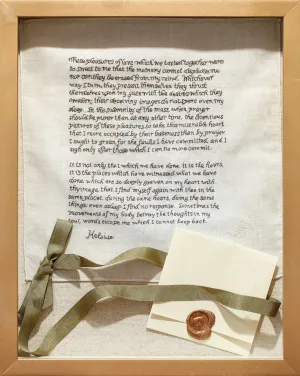 These pleasures of love which we tasted together were
so sweet to me that the memory cannot displease me
nor can they be erased from my mind. Whichever
way I turn, they present themselves they thrust
themselves upon my gaze with the desires which they
awaken; their deceiving images do not spare even my
sleep. In the solemnity of the mass, when prayer
should be purer than at any other time, the
pictures of these pleasures so take this miserable heart
that I more occupied by their baseness than by prayer.
I ought to groan for the faults I have committed, and I
sigh only after those which I can no more commit.
It is not only that which we have done. It is the hours,
it is the places which have witnessed what we have
done which are so deeply graven on my heart with
thy image that I find myself again with thee in the
same places, during the same hours, doing the same
things; even asleep I find no response. Sometimes the
movements of my body betray the thoughts in my
soul; words escape me which I cannot keep back.
Heloise